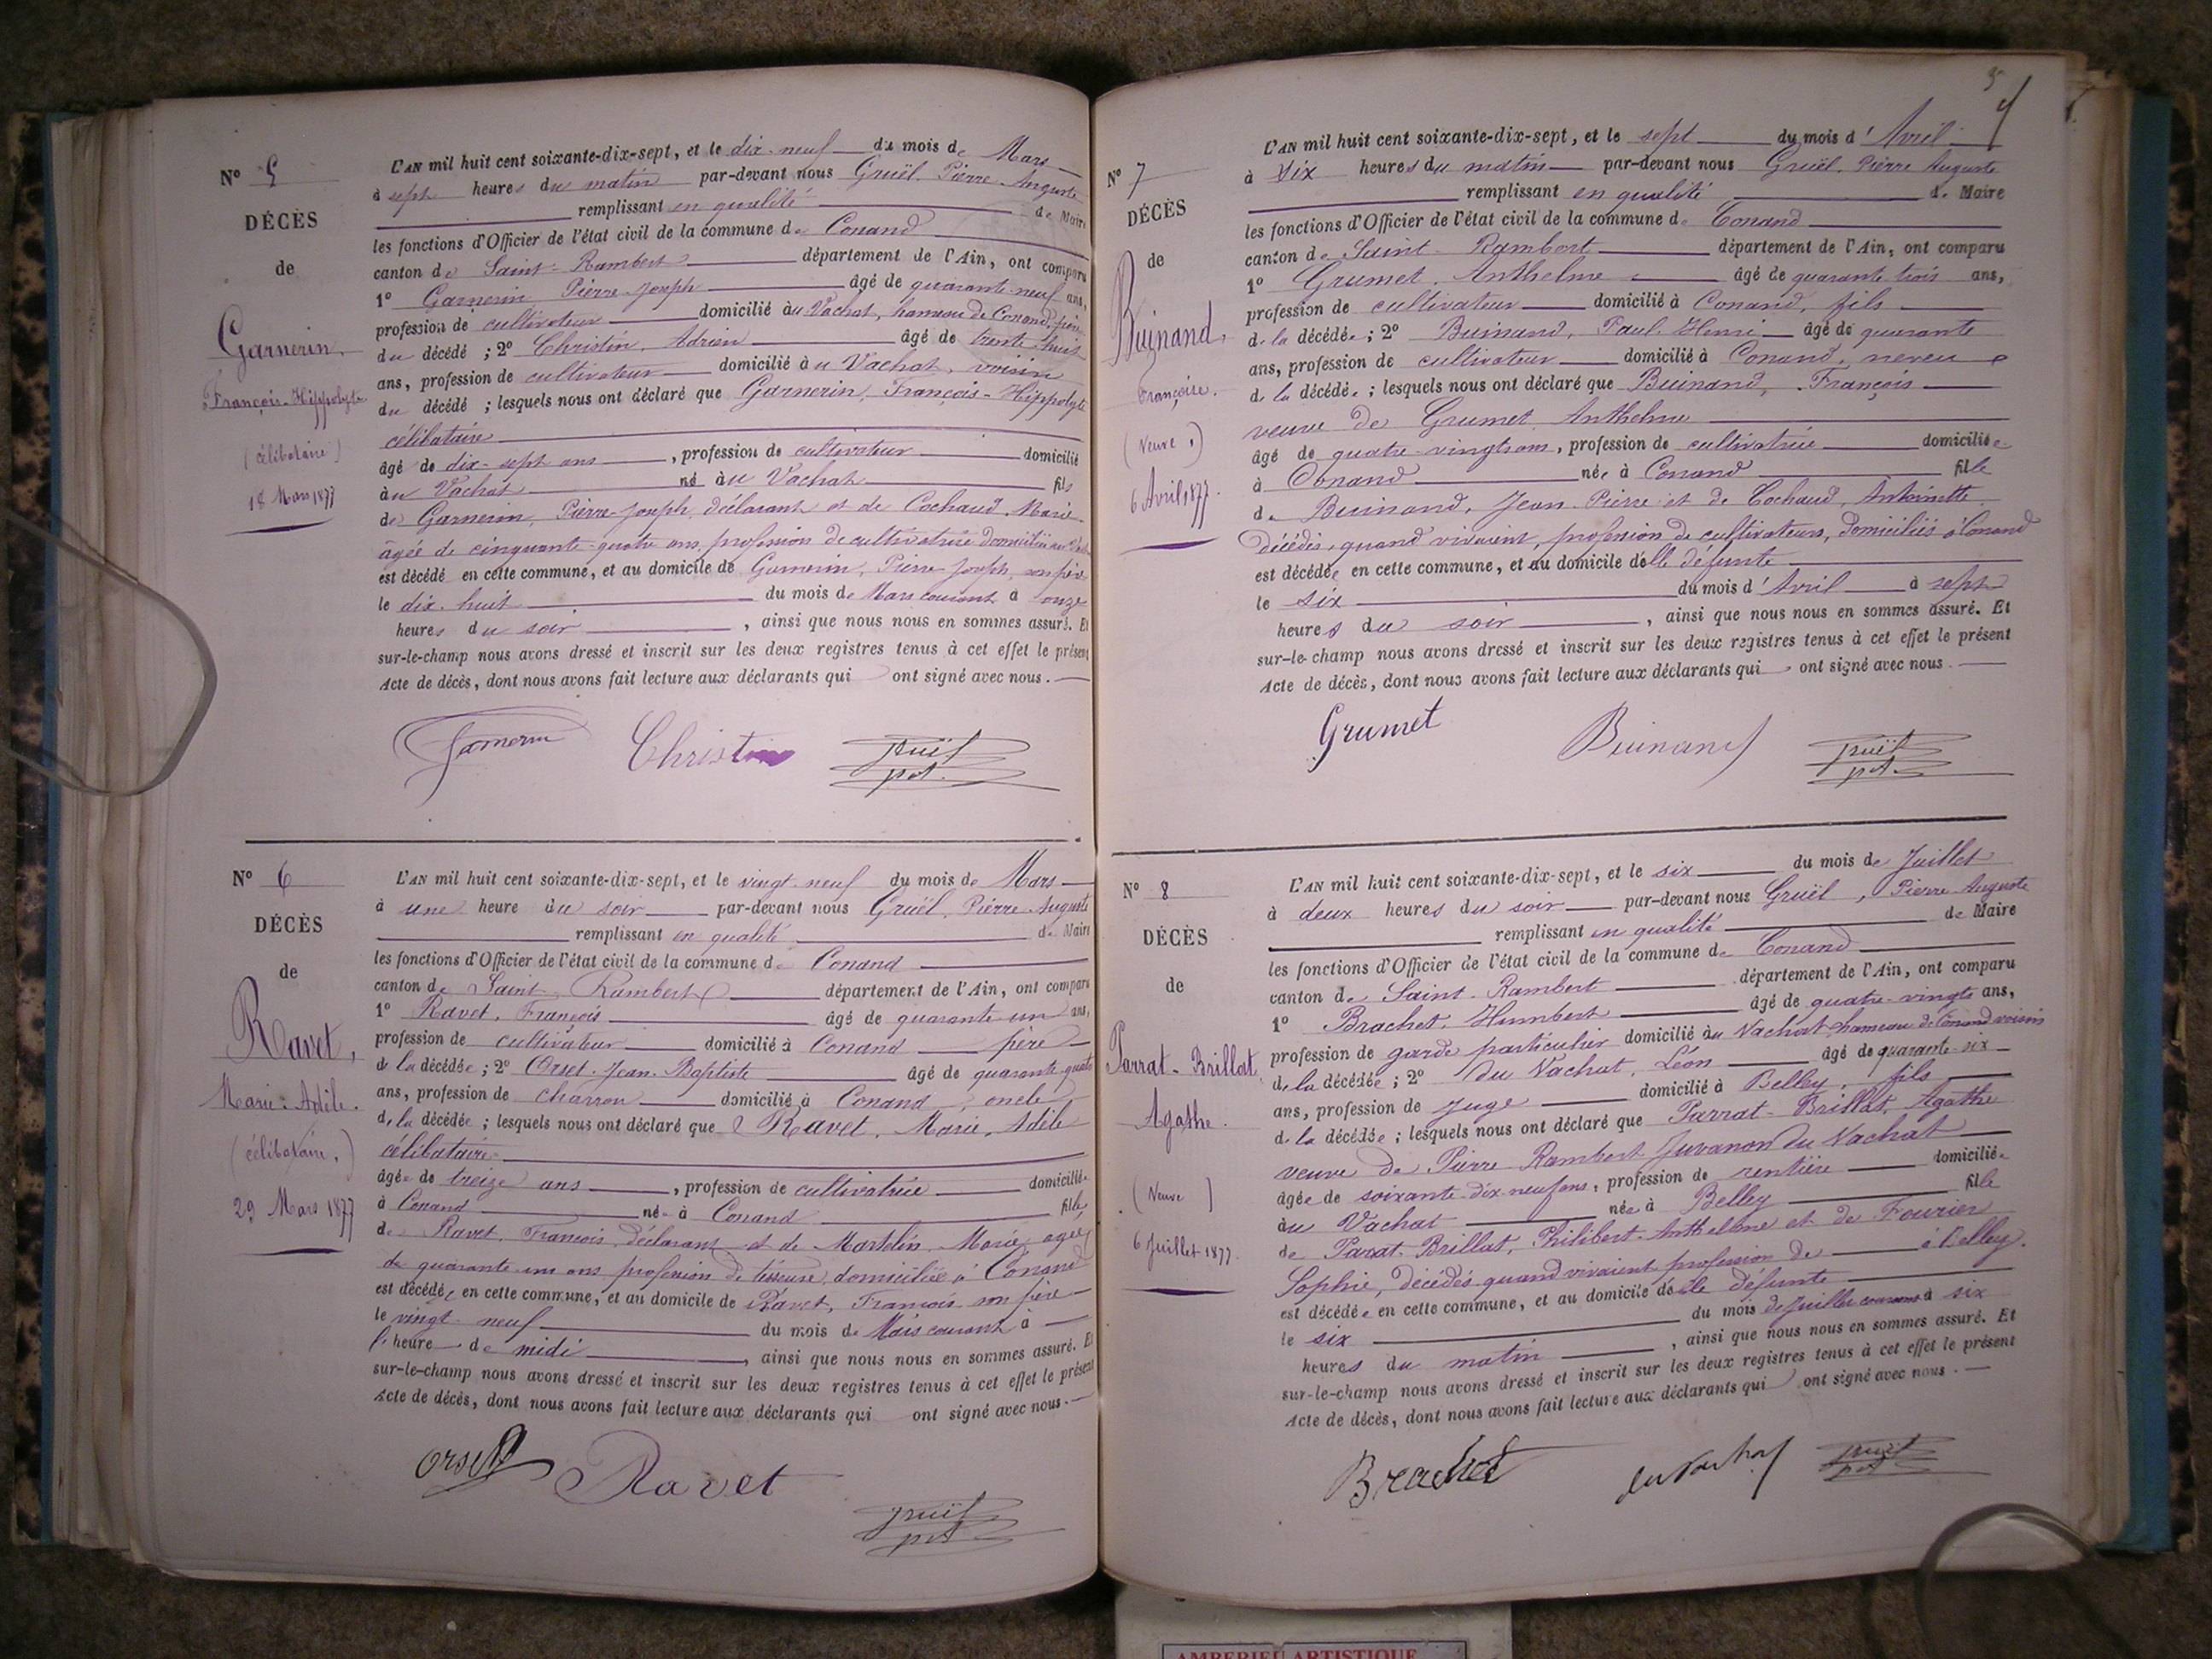 N° 5
DÉCÈS
de
Garnerin,
François-Hippolyte
(célibataire)
18 Mars 1877
L'AN mil huit cent soixante-dix-sept, et le dix-neuf du mois de Mars
à sept heures du matin par-devant nous Gruël Pierre-Auguste
remplissant en qualité de Maire
les fonctions d'Officier de l'état civil de la commune de Conand
canton de Saint-Rambert département de l'Ain, ont comparu
1° Garnerin, Pierre-Joseph âgé de quarante-neuf ans,
profession de cultivateur domicilié au Vachat, hameau de Conand, père
du décédé ; 2° Christin, Adrien âgé de trente-huit
ans, profession de cultivateur domicilié au Vachat, voisin
du décédé ; lesquels nous ont déclaré que Garnerin, François-Hippolyte
célibataire
âgé de dix-sept ans, profession de cultivateur domicilié
au Vachat né au Vachat fils
de Garnerin, Pierre-Joseph, déclarant et de Cochaud, Marie
âgée de cinquante-quatre ans, profession de cultivatrice domiciliée au
est décédé en cette commune, et au domicile de Garnerin, Pierre-Joseph, son père
le dix-huit du mois de Mars courant à onze
heures du soir, ainsi que nous nous en sommes assuré. Et
sur-le-champ nous avons dressé et inscrit sur les deux registres tenus à cet effet le présent
Acte de décès, dont nous avons fait lecture aux déclarants qui ont signé avec nous.
Garnerin Christin gruël
N° 6
DÉCÈS
de
Ravet,
Marie-Adèle.
(célibataire,)
29 Mars 1877
L'AN mil huit cent soixante-dix-sept, et le vingt-neuf du mois de Mars
à une heure du soir par-devant nous Gruël, Pierre-Auguste
remplissant en qualité de Maire
les fonctions d'Officier de l'état civil de la commune de Conand
canton de Saint-Rambert département de l'Ain, ont comparu
1° Ravet, François âgé de quarante-un ans,
profession de cultivateur domicilié à Conand père
de la décédée ; 2° Orset, Jean-Baptiste âgé de quarante-quatre
ans, profession de charron domicilié à Conand, oncle
de la décédée ; lesquels nous ont déclaré que Ravet, Marie, Adèle
célibataire
âgée de treize ans, profession de cultivatrice domiciliée
à Conand née à Conand fille
de Ravet, François, déclarant et de Martelin, Marie, agée
de quarante-un ans profession de tisseuse, domiciliée à Conand
est décédée en cette commune, et au domicile de Ravet, François son père
le vingt-neuf du mois de Mars courant à
l'heure de midi, ainsi que nous nous en sommes assuré. Et
sur-le-champ nous avons dressé et inscrit sur les deux registres tenus à cet effet le présent
Acte de décès, dont nous avons fait lecture aux déclarants qui ont signé avec nous.
Orset Ravet
gruël
N° 7
DÉCÈS
de
Buinand,
Françoise.
(Veuve,)
6 Avril 1877.
L'AN mil huit cent soixante-dix-sept, et le sept du mois d'Avril
à dix heures du matin par-devant nous Gruël, Pierre Auguste
remplissant en qualité de Maire
les fonctions d'Officier de l'état civil de la commune de Conand
canton de Saint-Rambert département de l'Ain, ont comparu
1° Grumet, Anthelme âgé de quarante-trois ans,
profession de cultivateur domicilié à Conand, fils
de la décédée ; 2° Buinand, Paul Henri âgé de quarante
ans, profession de cultivateur domicilié à Conand, neveu
de la décédée ; lesquels nous ont déclaré que Buinand, François
veuve de Grumet Anthelme
âgé de quatre-vingts ans, profession de cultivatrice domiciliée
à Conand née à Conand fille
de Buinand, Jean-Pierre et de Cochaud, Antoinette
décédés, quand vivaient, profession de cultivateurs, domiciliés à Conand
est décédée en cette commune, et au domicile d'elle défunte
le six du mois d'Avril à sept
heures du soir, ainsi que nous nous en sommes assuré. Et
sur-le-champ nous avons dressé et inscrit sur les deux registres tenus à cet effet le présent
Acte de décès, dont nous avons fait lecture aux déclarants qui ont signé avec nous.
Grumet Buinand gruël
N° 8
DÉCÈS
de
Parrat-Brillat,
Agathe.
(Veuve)
6 Juillet 1877.
L'AN mil huit cent soixante-dix-sept, et le six du mois de Juillet
à deux heures du soir par-devant nous Gruël, Pierre-Auguste
remplissant en qualité de Maire
les fonctions d'Officier de l'état civil de la commune de Conand
canton de Saint-Rambert département de l'Ain, ont comparu
1° Brachet, Humbert âgé de quatre-vingts ans,
profession de garde particulier domicilié au Vachat hameau de Conand voisin
de la décédée ; 2° du Vachat, Léon âgé de quarante-six
ans, profession de Juge domicilié à Belley, fils
de la décédée ; lesquels nous ont déclaré que Parrat-Brillat, Agathe
veuve de Pierre Rambert Juvanon du Vachat
âgée de soixante-dix-neuf ans, profession de rentière domiciliée
au Vachat née à Belley fille
de Parat-Brillat, Philibert-Anthelme et de Fourier
Sophie, décédés quand vivaient profession de à Belley.
est décédée en cette commune, et au domicile d'elle défunte
le six du mois de Juillet courant à six
heures du matin, ainsi que nous nous en sommes assuré. Et
sur-le-champ nous avons dressé et inscrit sur les deux registres tenus à cet effet le présent
Acte de décès, dont nous avons fait lecture aux déclarants qui ont signé avec nous.
Brachet du Vachat gruël
AMBERIEU ARTISTIQUE